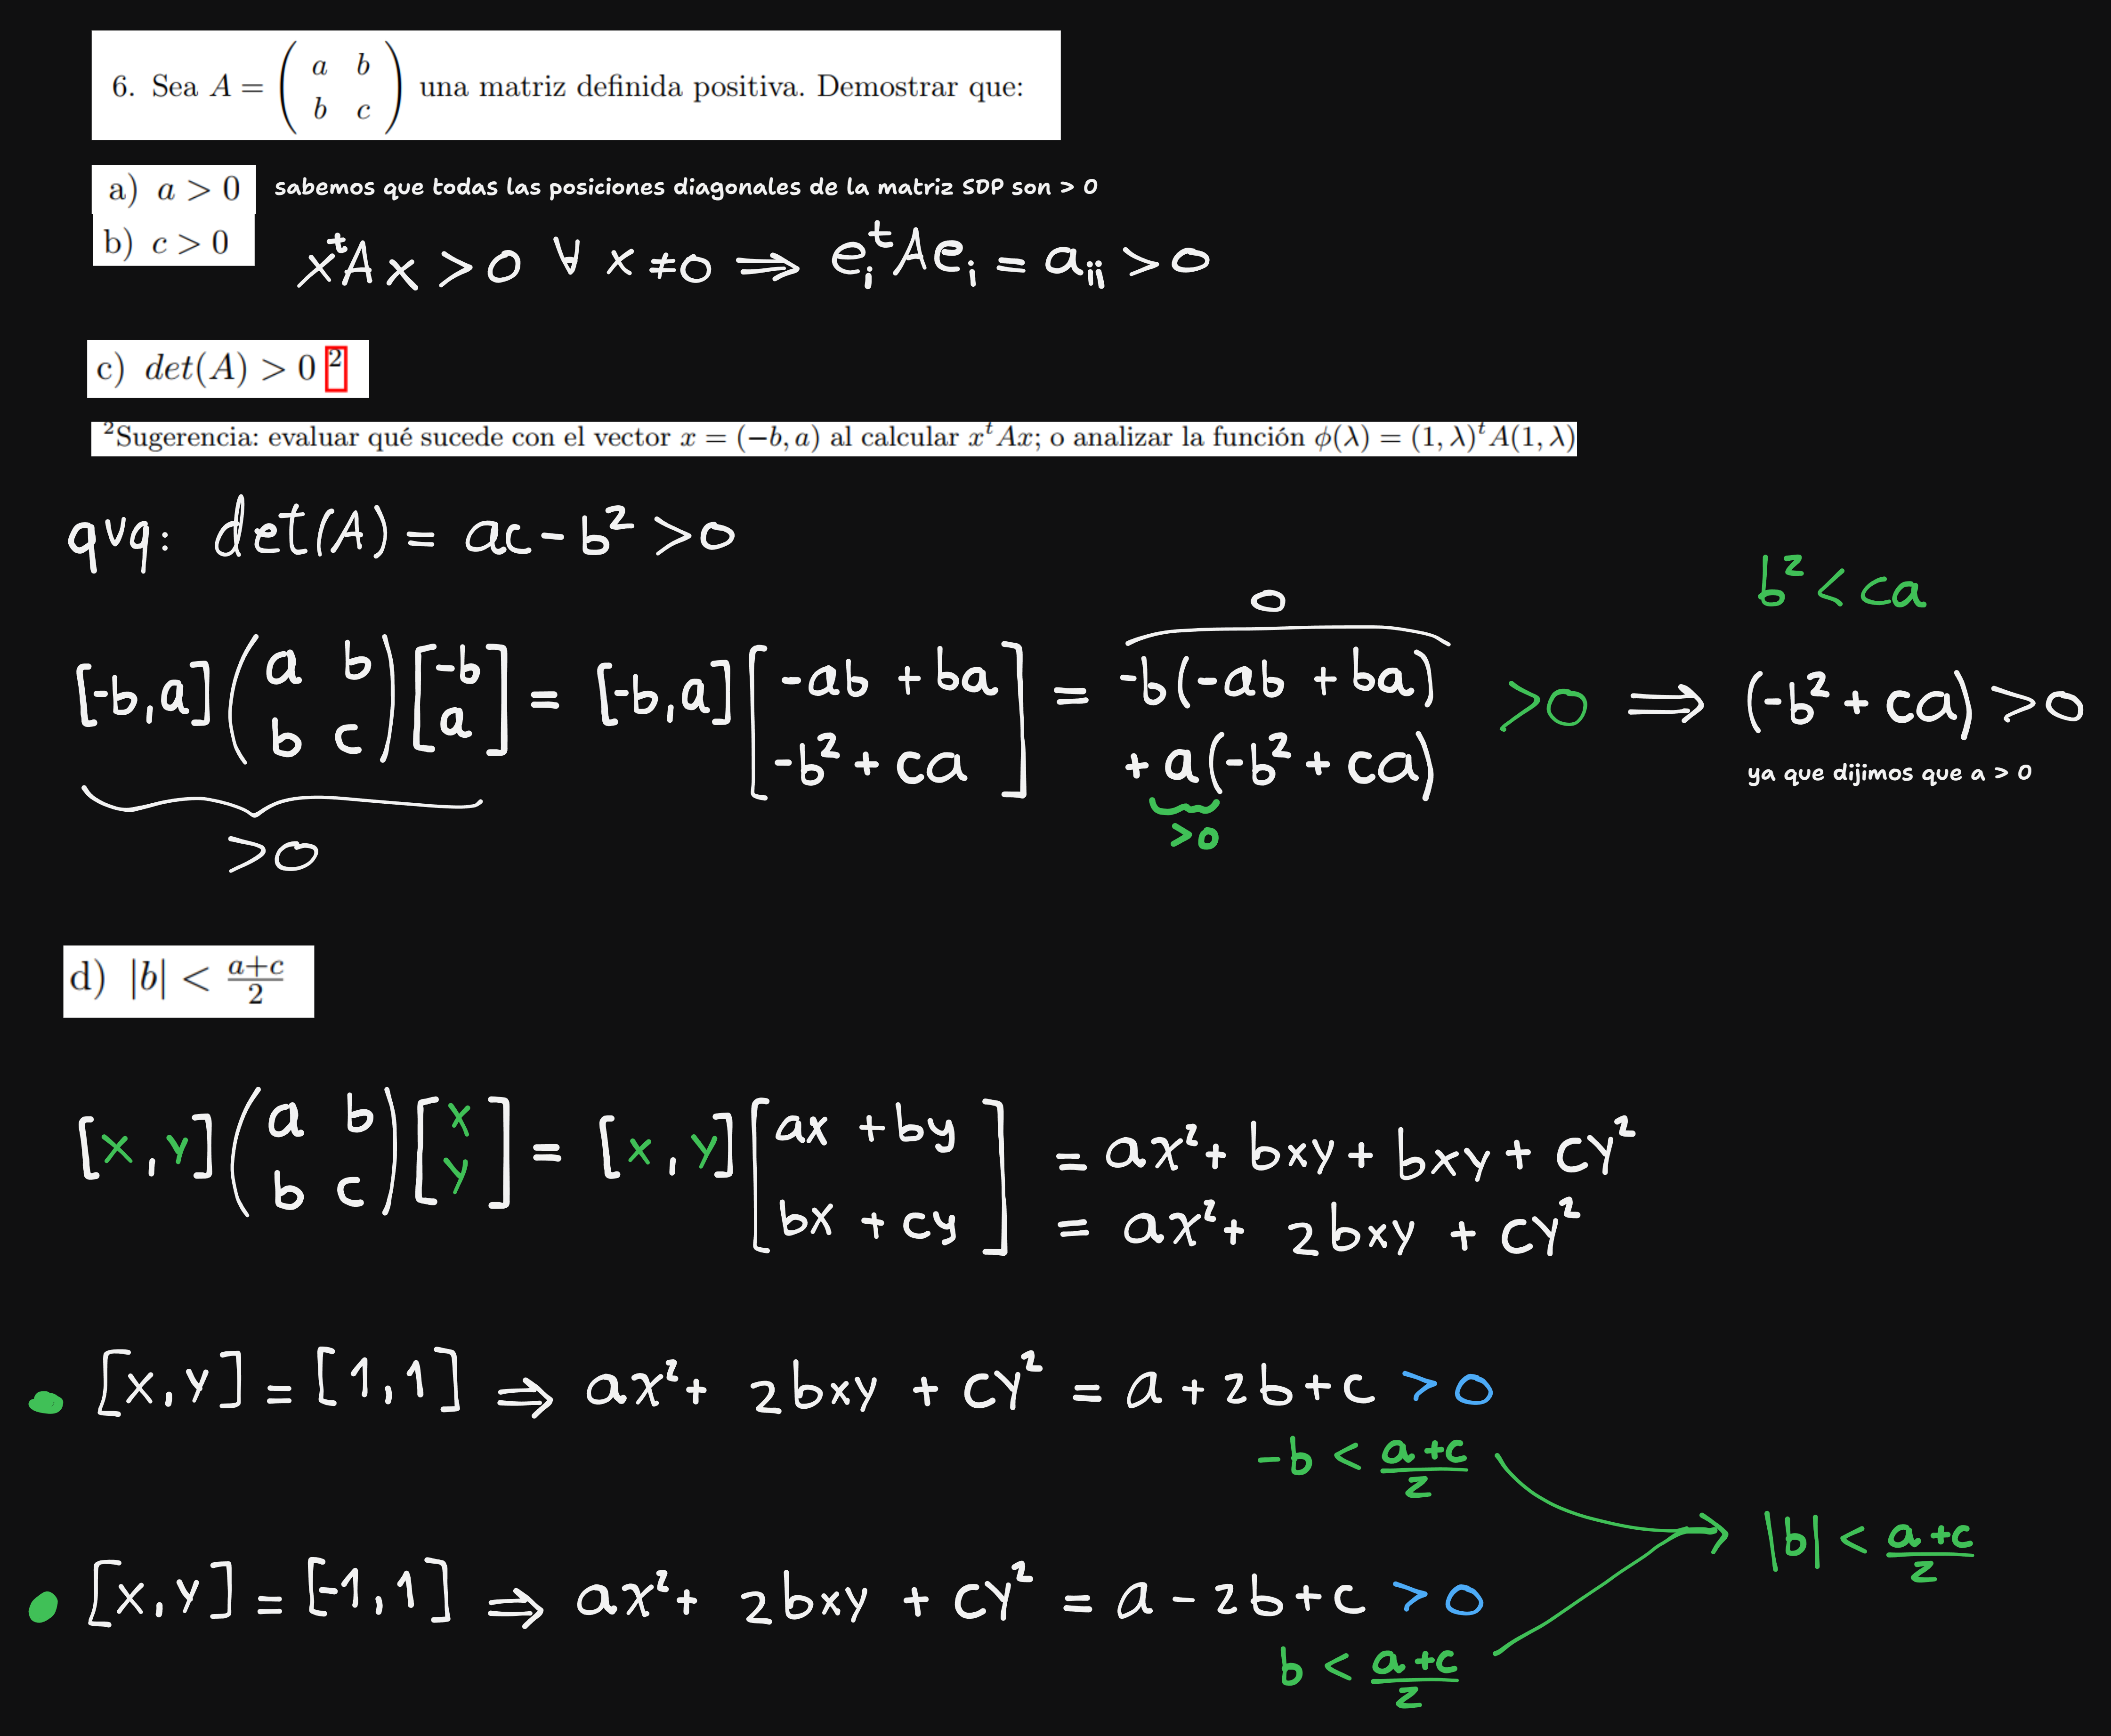 6. Sea A = ( a b ; b c ) una matriz definida positiva. Demostrar que:
a) a > 0
sabemos que todas las posiciones diagonales de la matriz SDP son > 0
b) c > 0
xᵗAx > 0 ∀ x ≠ 0 ⟹ eᵢᵗAeᵢ = aᵢᵢ > 0
c) det(A) > 0 ²
²Sugerencia: evaluar qué sucede con el vector x = (−b, a) al calcular xᵗAx; o analizar la función ϕ(λ) = (1, λ)ᵗA(1, λ)
qvq: det(A) = ac - b² > 0
b² < ca
0
[-b,a] ( a b ; b c ) [ -b ; a ] = [-b,a] [ -ab + ba ; -b² + ca ] = -b(-ab + ba) + a(-b² + ca) > 0 ⟹ (-b² + ca) > 0
ya que dijimos que a > 0
>0
>0
d) |b| < (a+c)/2
[x,y] ( a b ; b c ) [ x ; y ] = [x,y] [ ax + by ; bx + cy ] = ax² + bxy + bxy + cy²
= ax² + 2bxy + cy²
[x,y] = [1,1] ⟹ ax² + 2bxy + cy² = a + 2b + c > 0
-b < (a+c)/2
|b| < (a+c)/2
[x,y] = [-1,1] ⟹ ax² + 2bxy + cy² = a - 2b + c > 0
b < (a+c)/2